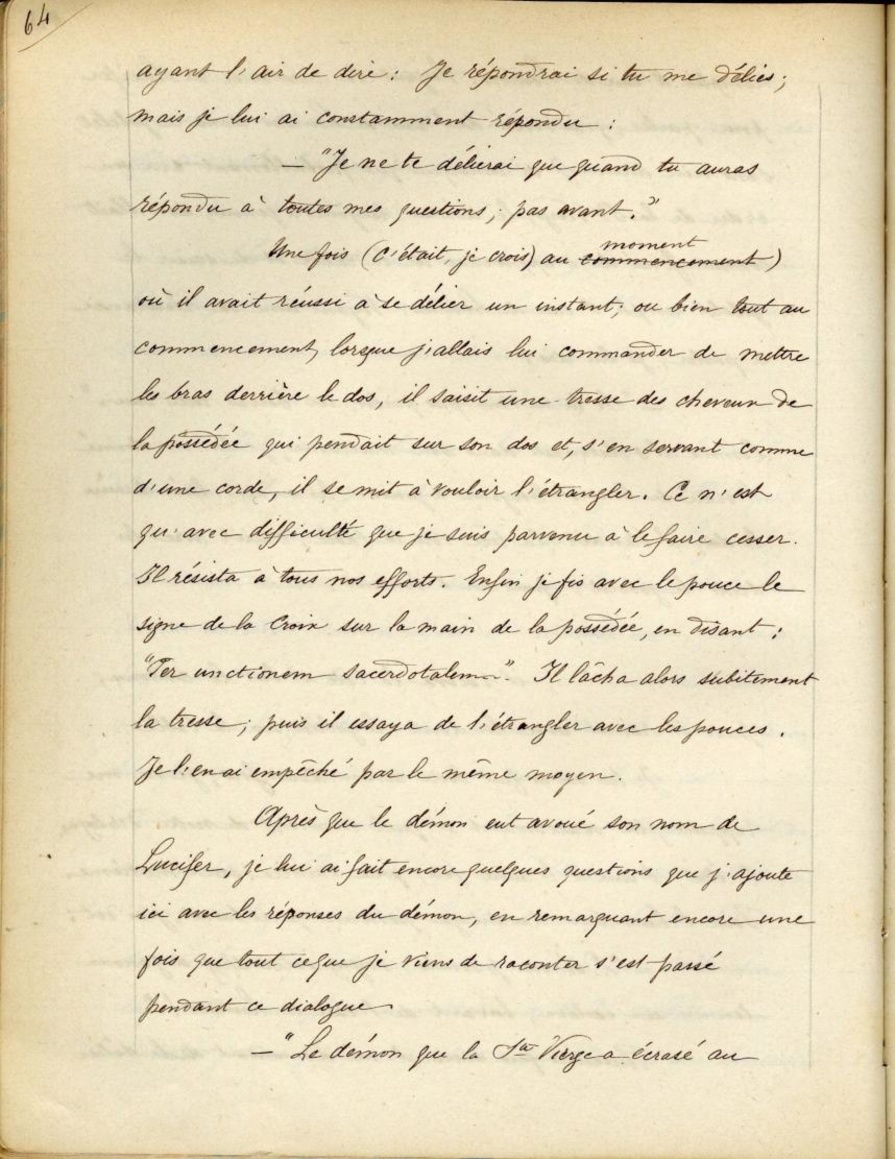 64
ayant l'air de dire : Je répondrai si tu me délies ;
mais je lui ai constamment répondu :
— "Je ne te délierai que quand tu auras
répondu à toutes mes questions ; pas avant."
Une fois (c'était, je crois) au commencement moment)
où il avait réussi à se délier un instant ; ou bien tout au
commencement, lorsque j'allais lui commander de mettre
les bras derrière le dos, il saisit une tresse des cheveux de
la possédée qui pendait sur son dos et, s'en servant comme
d'une corde, il se mit à vouloir l'étrangler. Ce n'est
qu'avec difficulté que je suis parvenu à le faire cesser.
Il résista à tous nos efforts. Enfin je fis avec le pouce le
signe de la Croix sur la main de la possédée, en disant :
"Per unctionem sacerdotalem...". Il lâcha alors subitement
la tresse ; puis il essaya de l'étrangler avec les pouces.
Je l'en ai empêché par le même moyen.
Après que le démon eut avoué son nom de
Lucifer, je lui ai fait encore quelques questions que j'ajoute
ici avec les réponses du démon, en remarquant encore une
fois que tout ce que je viens de raconter s'est passé
pendant ce dialogue
— "Le démon que la Ste Vierge a écrasé au